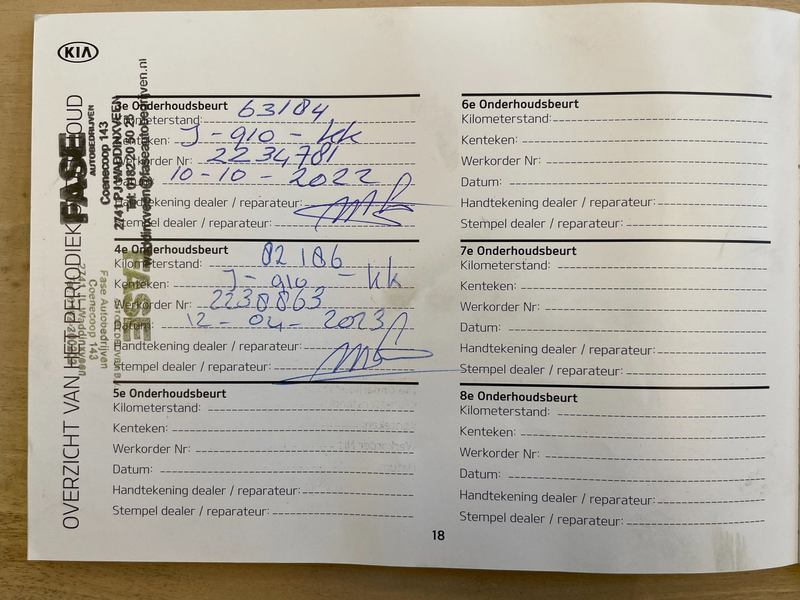 KIA
OVERZICHT VAN HET PERIODIEK
OUD
FASE
AUTOBEDRIJVEN
Coenecoop 143
2741 PJ WADDINXVEEN
FASE
Fase Autobedrijven
Coenecoop 143
Waddinxveen
3e Onderhoudsbeurt
63184
Kilometerstand:
Kenteken: J-910-KK
Werkorder Nr: 2234781
10-10-2022
Handtekening dealer / reparateur:
Stempel dealer / reparateur:
4e Onderhoudsbeurt
Kilometerstand: 82186
Kenteken: J-910-KK
Werkorder Nr: 2238863
Datum: 12-04-2023
Handtekening dealer / reparateur:
Stempel dealer / reparateur:
5e Onderhoudsbeurt
Kilometerstand:
Kenteken:
Werkorder Nr:
Datum:
Handtekening dealer / reparateur:
Stempel dealer / reparateur:
6e Onderhoudsbeurt
Kilometerstand:
Kenteken:
Werkorder Nr:
Datum:
Handtekening dealer / reparateur:
Stempel dealer / reparateur:
7e Onderhoudsbeurt
Kilometerstand:
Kenteken:
Werkorder Nr:
Datum:
Handtekening dealer / reparateur:
Stempel dealer / reparateur:
8e Onderhoudsbeurt
Kilometerstand:
Kenteken:
Werkorder Nr:
Datum:
Handtekening dealer / reparateur:
Stempel dealer / reparateur:
18